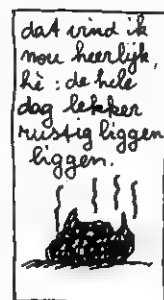 dat vind ik
nou heerlijk,
hè : de hele
dag lekker
rustig liggen
liggen.